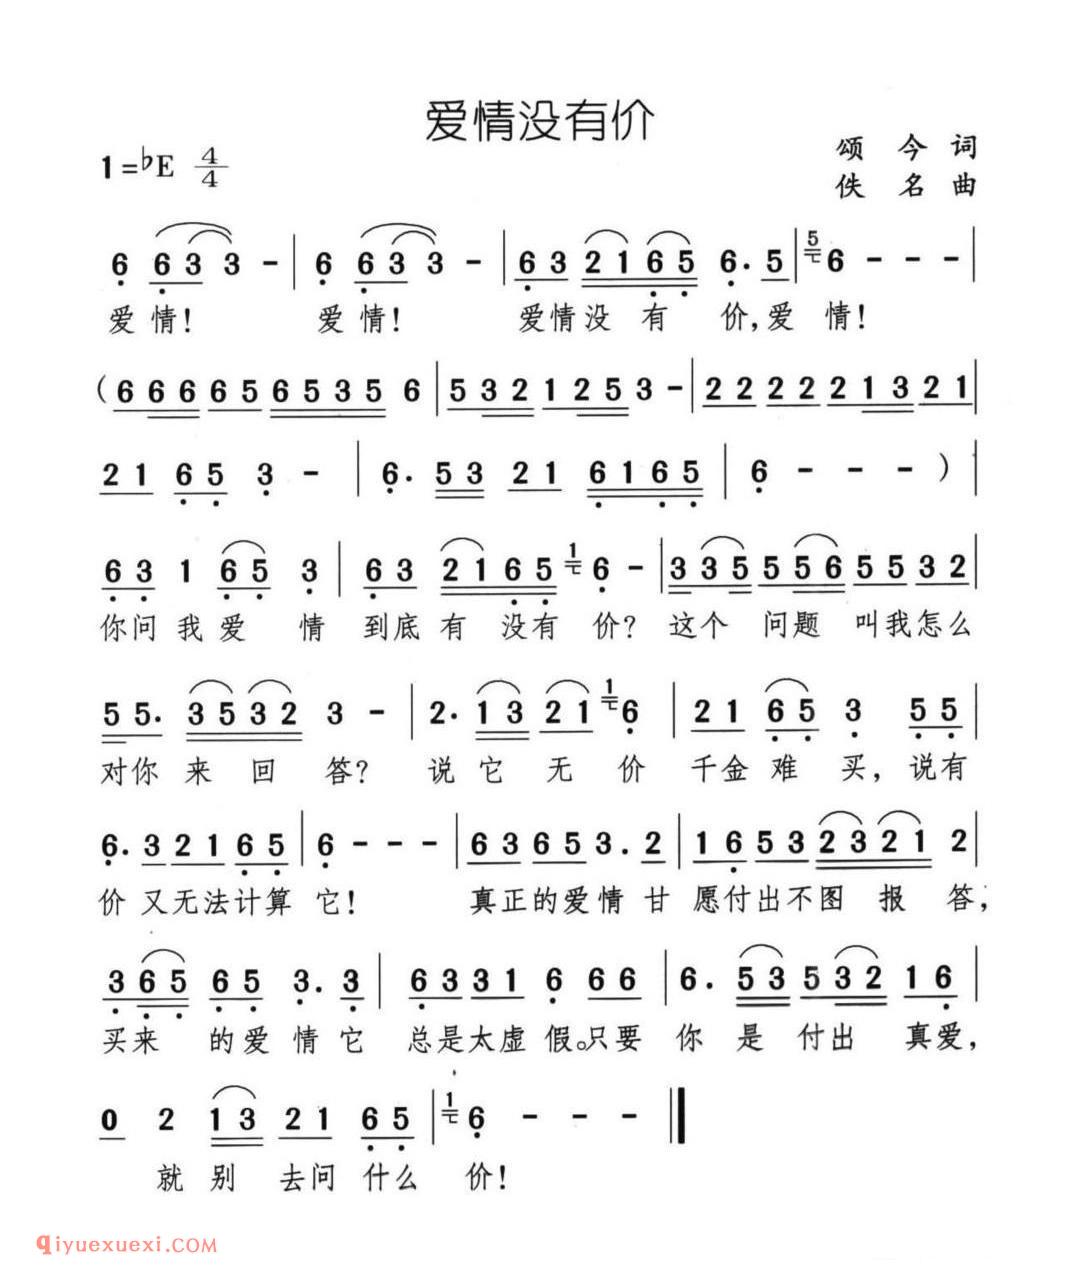 爱情没有价
1=♭E 4/4
颂 今 词
佚 名 曲
6 6 3 3 - | 6 6 3 3 - | 6 3 2 1 6 5 6. 5 | 5 6 - - - |
爱 情! 爱 情! 爱情没 有 价,爱 情!
( 6 6 6 6 5 6 5 3 5 6 | 5 3 2 1 2 5 3 - | 2 2 2 2 2 2 1 3 2 1 |
2 1 6 5 3 - | 6. 5 3 2 1 6 1 6 5 | 6 - - - ) |
6 3 1 6 5 3 | 6 3 2 1 6 5 1 6 - | 3 3 5 5 5 6 5 5 3 2 |
你问 我 爱 情 到底 有 没有 价? 这个 问题 叫我怎么
5 5. 3 5 3 2 3 - | 2. 1 3 2 1 1 6 | 2 1 6 5 3 5 5 |
对你 来 回 答? 说 它 无 价 千金 难 买, 说有
6. 3 2 1 6 5 | 6 - - - | 6 3 6 5 3. 2 | 1 6 5 3 2 3 2 1 2 |
价 又无法计算 它! 真正的爱情 甘 愿付出不图 报 答,
3 6 5 6 5 3. 3 | 6 3 3 1 6 6 6 | 6. 5 3 5 3 2 1 6 |
买来 的爱 情 它 总是太虚 假。只要 你 是 付出 真爱,
0 2 1 3 2 1 6 5 | 1 6 - - - ‖
就 别 去问 什么 价!
qiyuexuexi.COM